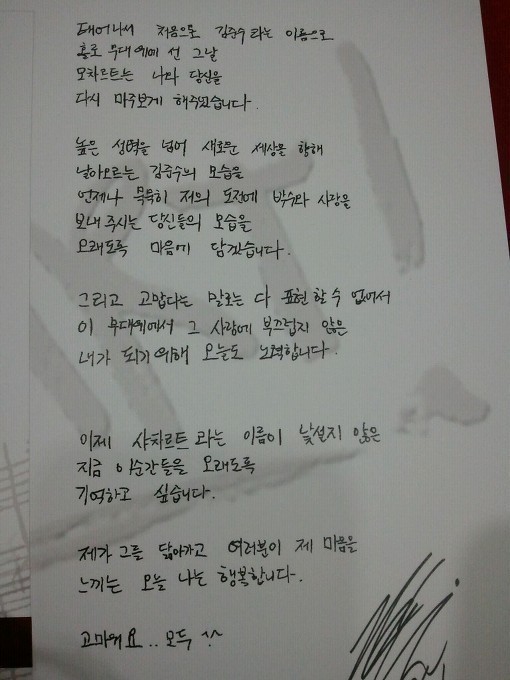 태어나서 처음으로 김준수라는 이름으로
홀로 무대위에 선 그날
모차르트는 나와 당신을
다시 마주보게 해주었습니다.
높은 성벽을 넘어 새로운 세상을 향해
날아오르는 김준수의 모습을
언제나 묵묵히 저의 도전에 박수와 사랑을
보내 주시는 당신들의 모습을
오래도록 마음에 담겠습니다.
그리고 고맙다는 말로는 다 표현할 수 없어서
이 무대위에서 그 사랑에 부끄럽지 않은
내가 되기위해 오늘도 노력합니다.
이제 샤차르트라는 이름이 낯설지 않은
지금 이순간들을 오래도록
기억하고 싶습니다.
제가 그를 닮아가고 여러분이 제 마음을
느끼는 오늘 나는 행복합니다.
고마워요.. 모두 ^^